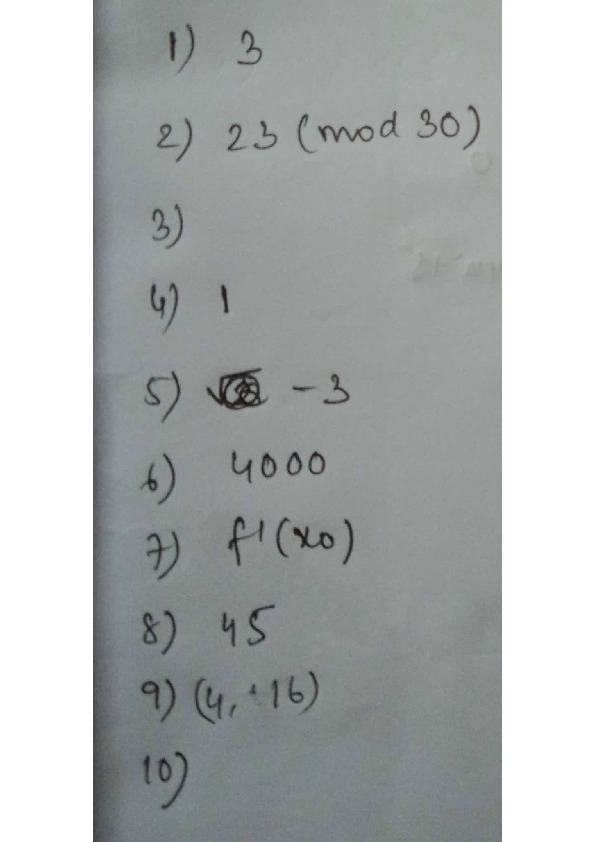 1) 3
2) 23 (mod 30)
3)
4) 1
5) -3
6) 4000
7) f'(x0)
8) 45
9) (4, 16)
10)